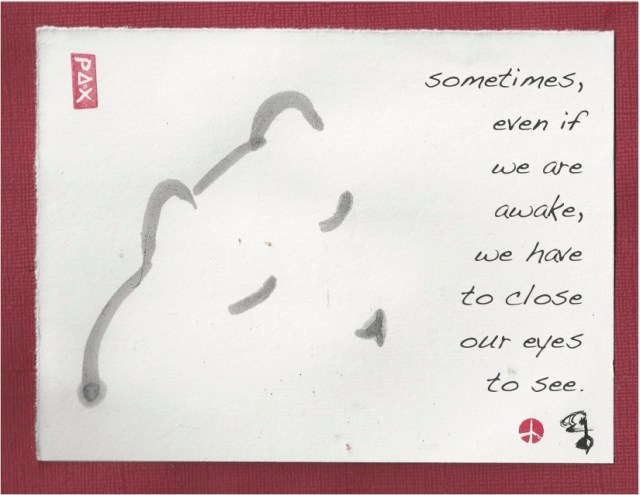 PAX
sometimes,
even if
we are
awake,
we have
to close
our eyes
to see.